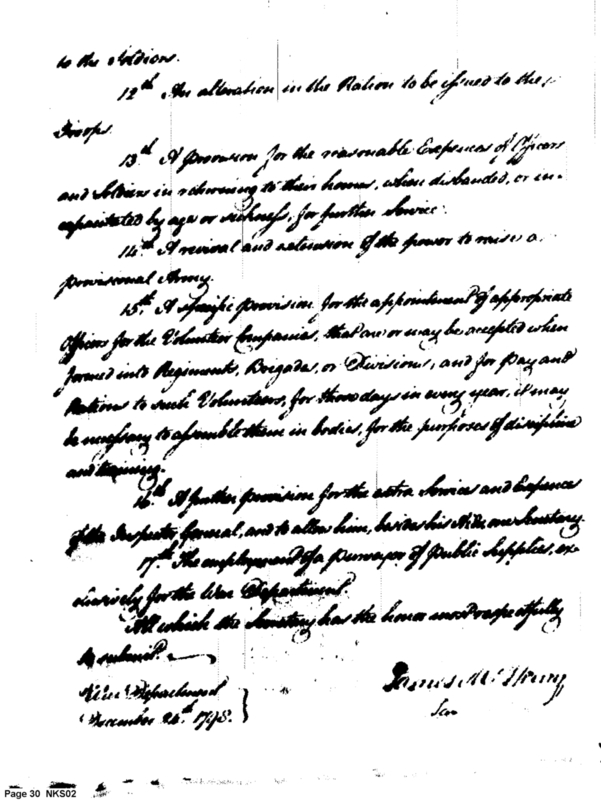 to the Soldiers.
12th An alteration in the Ration to be issued to the
Troops.
13th A provision for the reasonable Expences of Officers
and Soldiers in returning to their homes, when disbanded, or in-
capacitated by age or sickness, for further Service.
14th A revival and extension of the power to raise a
provisional Army.
15th A specific provision for the appointment of appropriate
Officers for the Volunteer Companies, that are or may be accepted when
formed into Regiments, Brigades, or Divisions, and for Pay and
Rations to such Volunteers, for those days in every year, it may
be necessary to assemble them in bodies, for the purposes of discipline
and training.
16th A further provision for the extra Services and Expences
of the Inspector General, and to allow him, besides his Aids, one Secretary.
17th The employment of a Purveyor of Public Supplies, ex-
clusively for the War Department.
All which the Secretary has the honor most respectfully
to submit.
War Department
December 24th 1798.
James McHenry
Page 30 NKS02